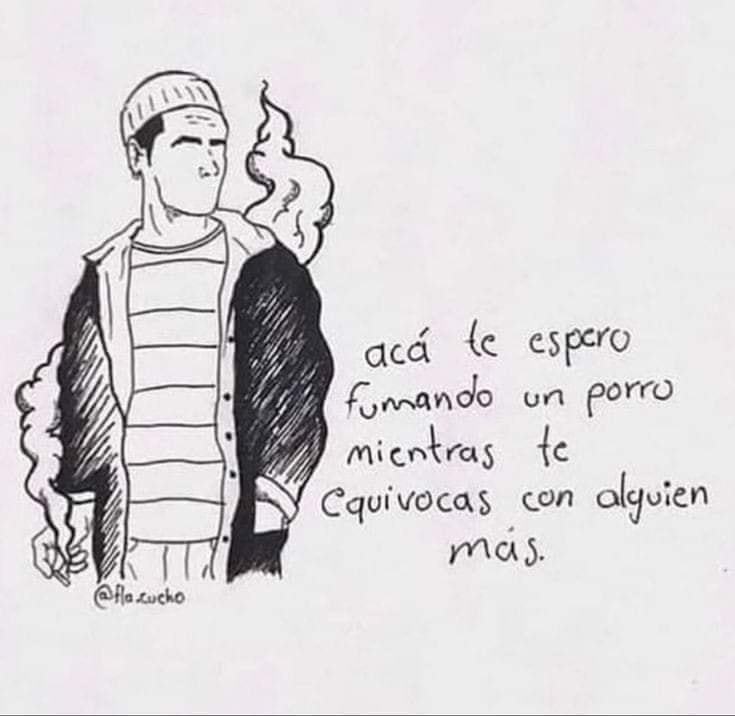 acá te espero
fumando un porro
mientras te
equivocas con alguien
más.
@fla.zucho